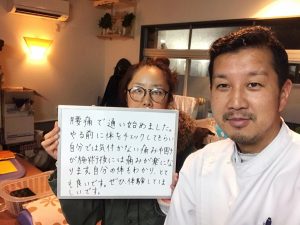 腰痛で通い始めました。
やる前に体をチェックしてもらい、
自分では気付かない痛みや困り
が施術後には痛みが楽にな
ります。自分の体もわかり、とて
も良いです。ぜひ、体験してほ
しいです。